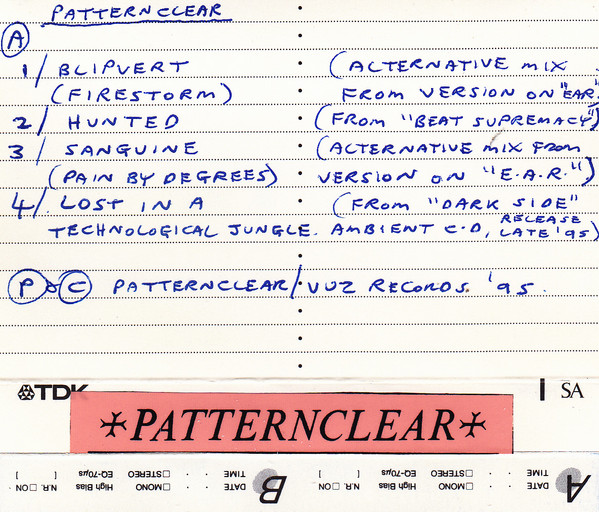 PATTERNCLEAR
A
1/ BLIPVERT (ALTERNATIVE MIX
(FIRESTORM) FROM VERSION ON "EAR")
2/ HUNTED (FROM "BEAT SUPREMACY")
3/ SANGUINE (ALTERNATIVE MIX FROM
(PAIN BY DEGREES) VERSION ON "E.A.R.")
4/. LOST IN A (FROM "DARK SIDE"
TECHNOLOGICAL JUNGLE. AMBIENT C.D, RELEASE LATE '95)
P & C PATTERNCLEAR/VUZ RECORDS. '95.
TDK SA
PATTERNCLEAR
A DATE TIME □ STEREO □ MONO EQ-70µs High Bias [ ] N.R. □ ON
B DATE TIME □ STEREO □ MONO EQ-70µs High Bias [ ] N.R. □ ON